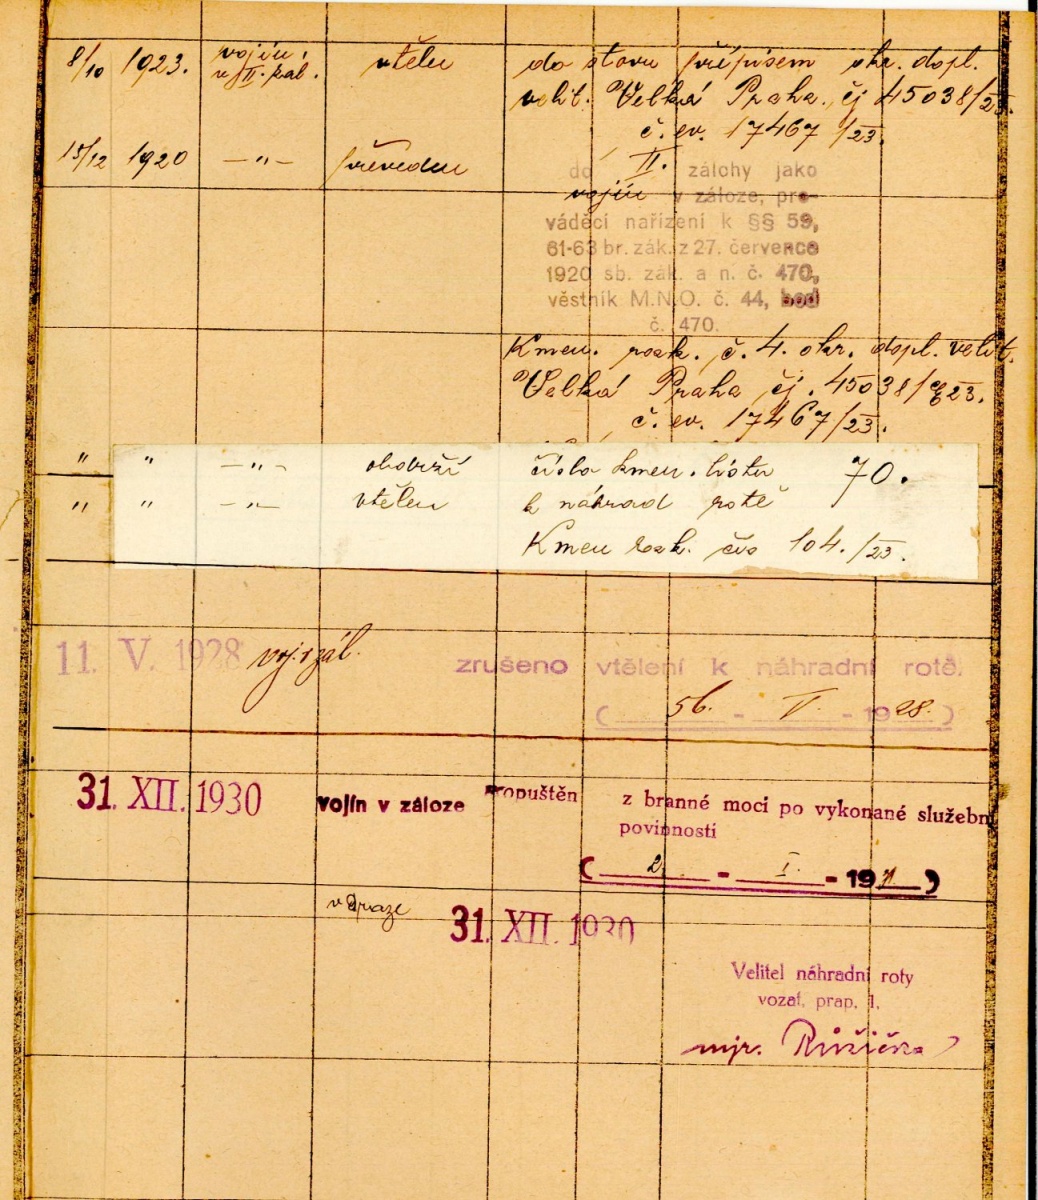 8/10 1923. vojín v II. zál. vtělen do stavu přípisem okr. dopl.
velit. Velká Praha, čj 45038/23.
č. ev. 17467/23.
15/12 1920 — " — převeden do II. zálohy jako
vojín v záloze, pro-
váděcí nařízení k §§ 59,
61-63 br. zák. z 27. července
1920 sb. zák. a n. č. 470,
věstník M.N.O. č. 44, bod
č. 470.
Kmen. rozk. č. 4. okr. dopl. velit.
Velká Praha čj. 45038/23.
č. ev. 17467/23.
" " — " — obdrží číslo kmen. listu 70.
" " — " — vtělen k náhrad rotě
Kmen rozk. čís 104./23.
11. V. 1928 voj. v zál. zrušeno vtělení k náhradní rotě.
( 56. - V. - 1928. )
31. XII. 1930 vojín v záloze propuštěn z branné moci po vykonané služební
povinnosti
( 2. - I. - 191 )
v Praze 31. XII. 1930
Velitel náhradní roty
vozat. prap. 1.
mjr. Růžička